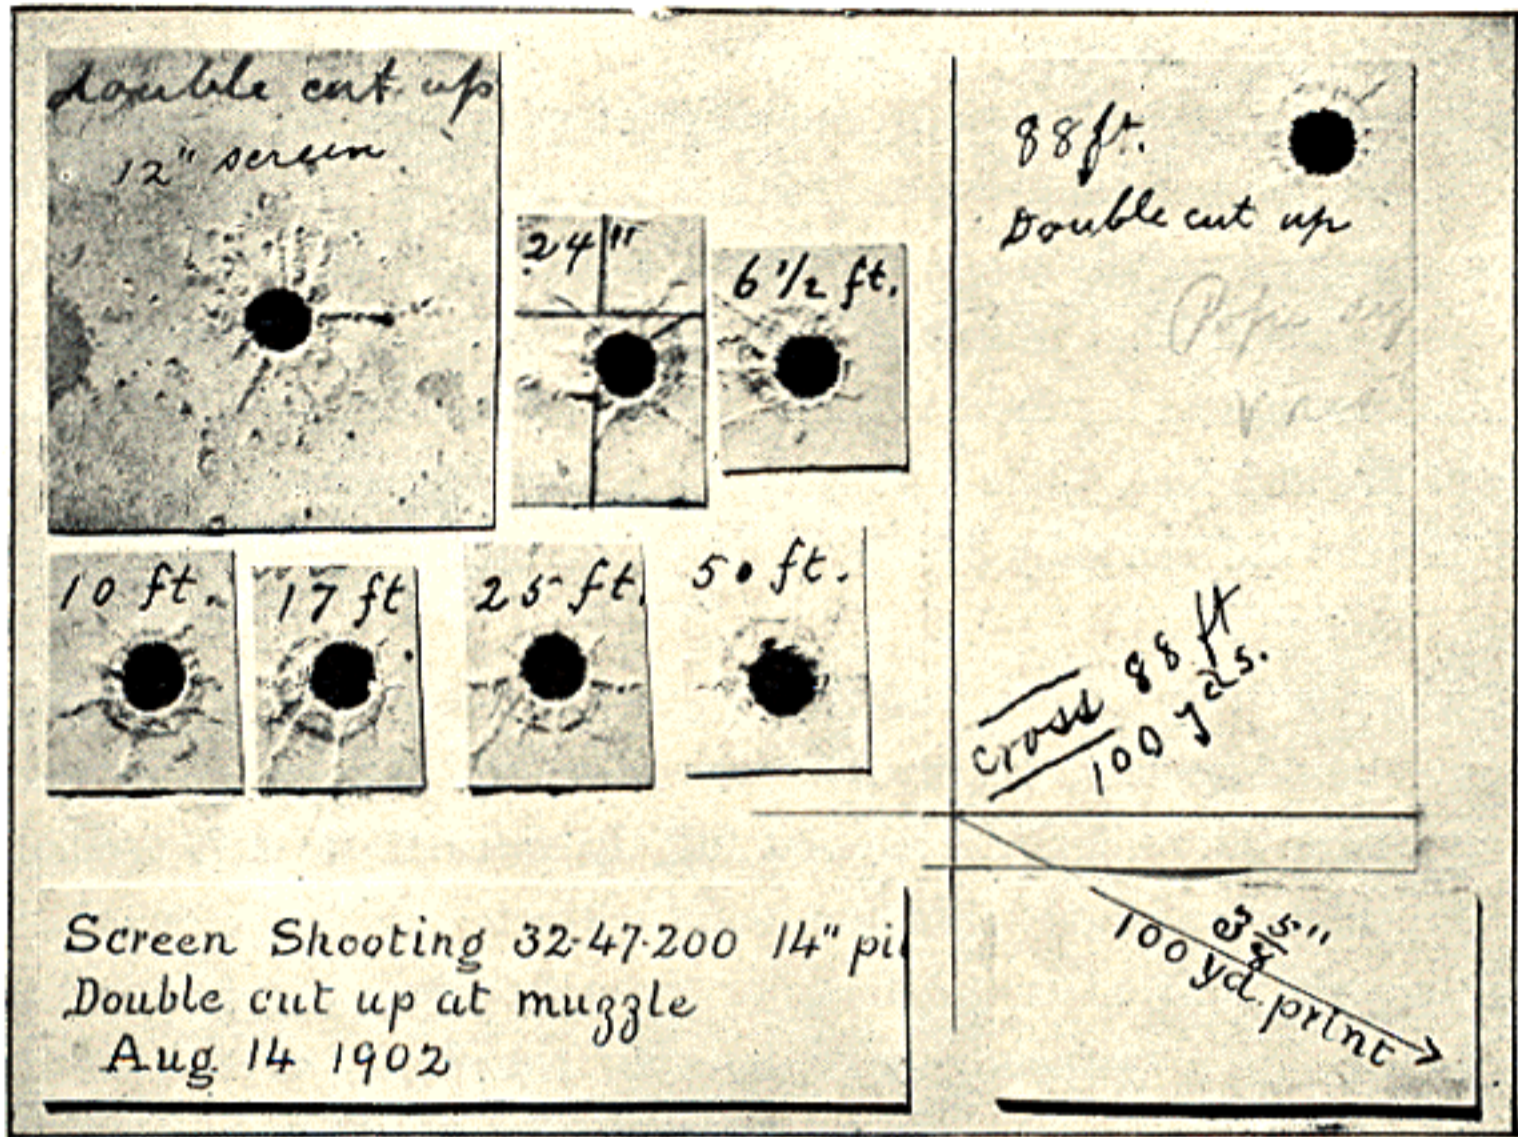 Double cut up
12" screen
24"
6 1/2 ft.
88 ft.
Double cut up
10 ft.
17 ft
25 ft.
50 ft.
cross 88 ft
100 yds.
Screen Shooting 32-47-200 14" pi
Double cut up at muzzle
Aug 14 1902
3 5/8"
100 yd. print